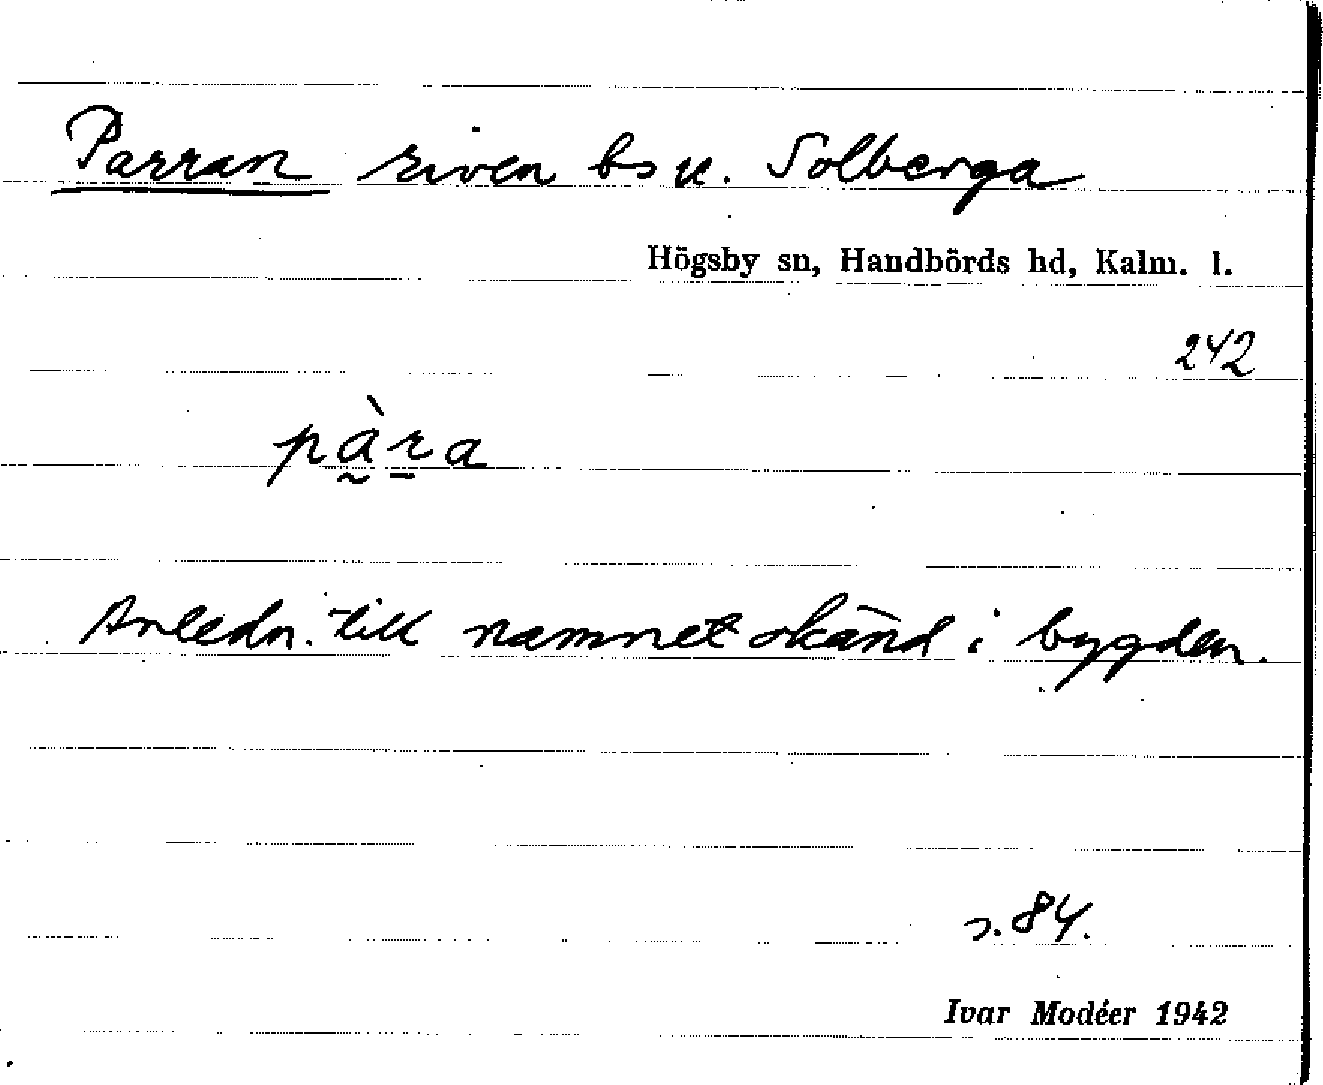 Parran riven bs u. Solberga
Högsby sn, Handbörds hd, Kalm. l.
242
pàra
Anledn. till namnet okänd i bygden.
s. 84.
Ivar Modéer 1942